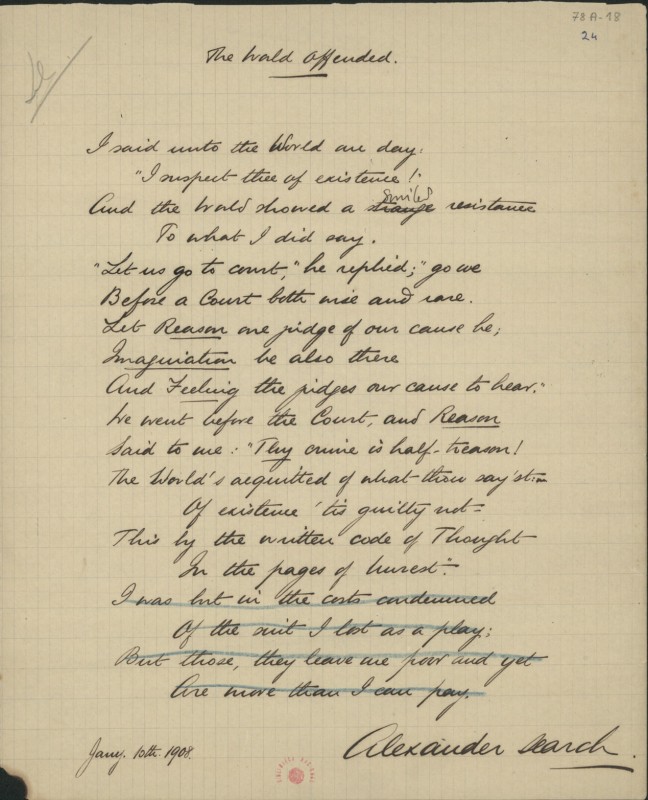 78A-18
24
The World Offended.
I said unto the World one day:
"I suspect thee of existence!"
smiled
And the World showed a strange resistance
To what I did say.
"Let us go to court," he replied; "go we
Before a Court both wise and rare.
Let Reason one judge of our cause be;
Imagination be also there
And Feeling the judges our cause to hear."
We went before the Court, and Reason
Said to me: "Thy crime is half-treason!
The World's acquitted of what thou say'st:—
Of existence 'tis guilty not—
This by the written code of Thought
In the pages of Unrest."
I was but in the costs condemned
Of the suit I lost as a play;
But those, they leave me poor and yet
Are more than I can pay.
Jany. 10th. 1908.
Alexander Search.
BIBLIOTECA NACIONAL